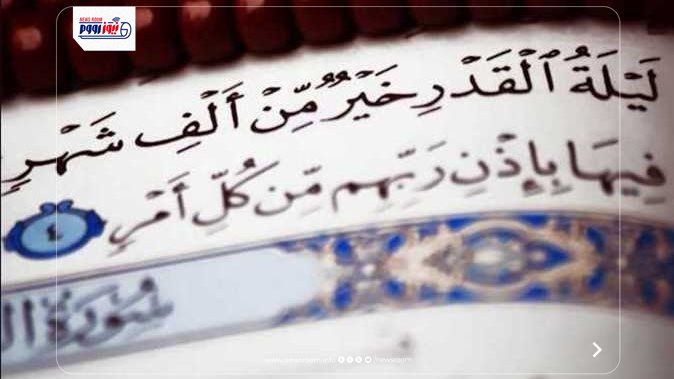 NEWS ROOM
نيوز رووم
لَيْلَةُ ٱلْقَدْرِ خَيْرٌ مِّنْ أَلْفِ شَهْرٍ
فِيهَا بِإِذْنِ رَبِّهِم مِّن كُلِّ أَمْرٍ ٤
سُورَةُ
www.newsroom.info /newsroom